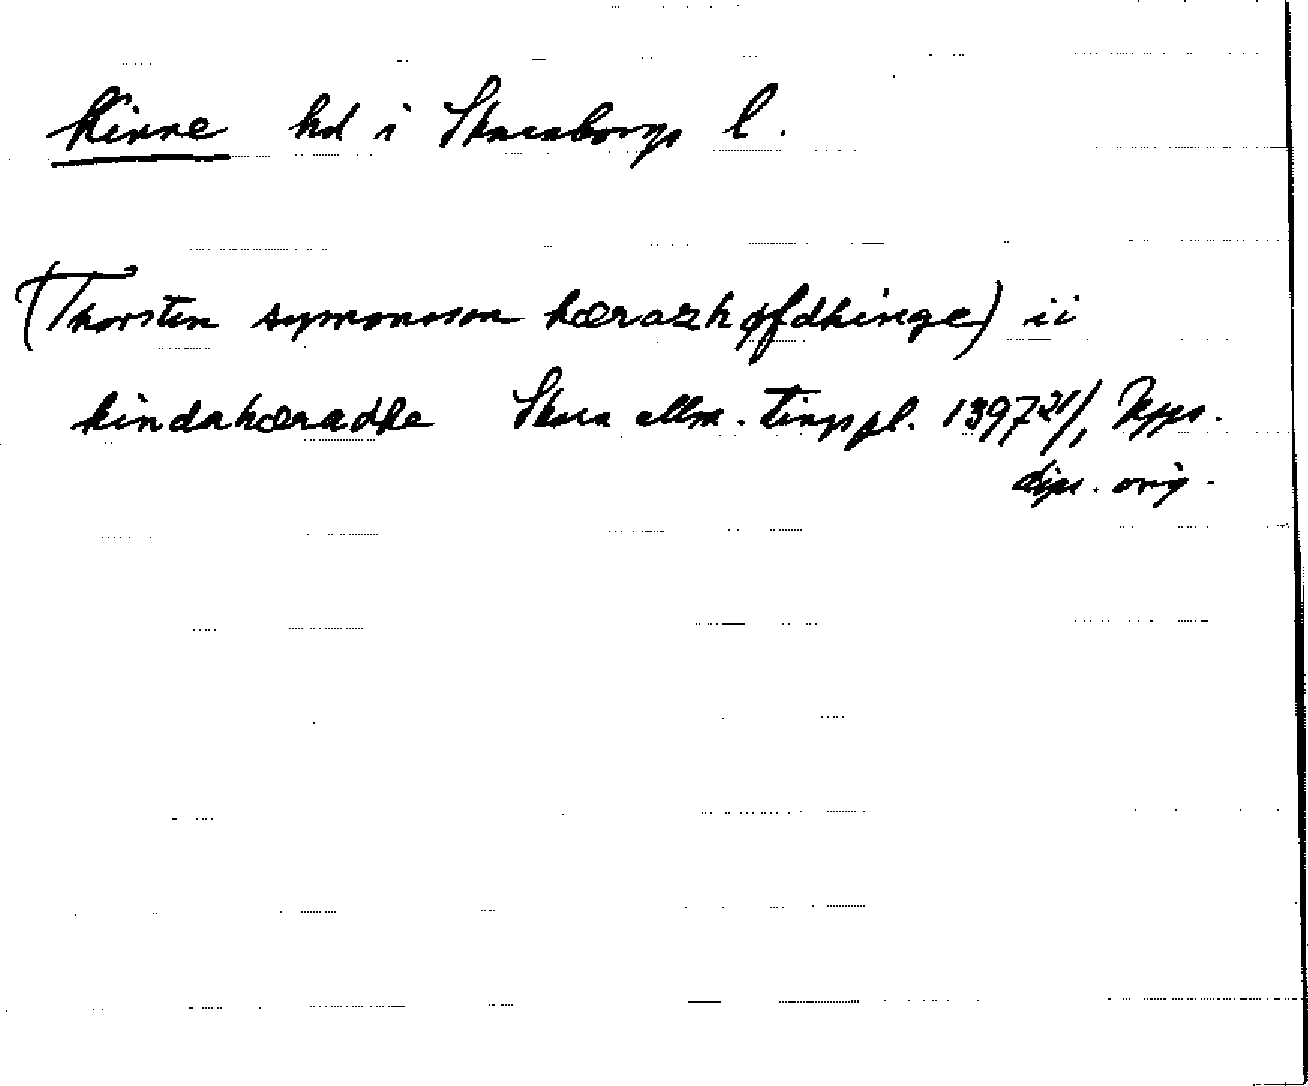 Kinne hd i Skaraborgs l.
(Thorsten symonsson hærazhøfdhinge) ii
kindahæradhe Skara allm. tingspl. 1397 21/1 Upps.
dipl. orig.